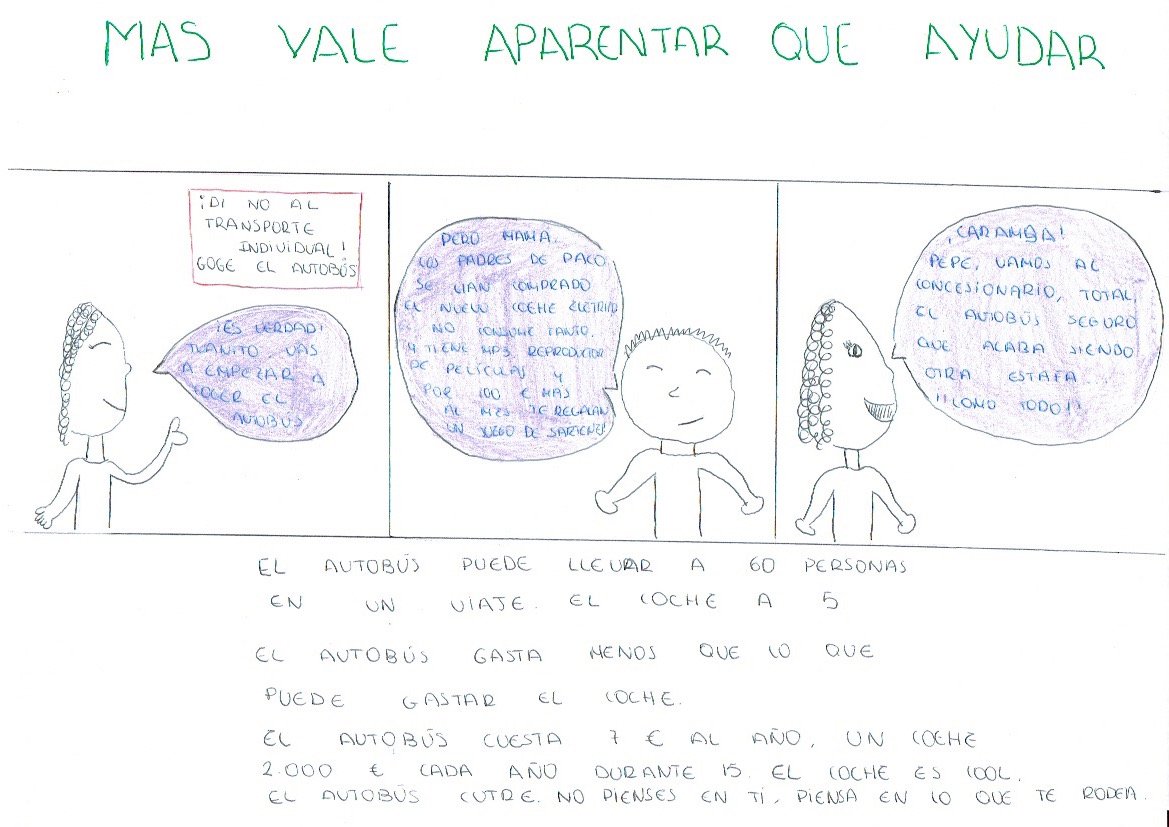 MAS VALE APARENTAR QUE AYUDAR
¡DI NO AL
TRANSPORTE
INDIVIDUAL!
GOGE EL AUTOBÚS
¡ES VERDAD!
JUANITO VAS
A EMPEZAR A
COGER EL
AUTOBÚS
PERO MAMÁ.
LOS PADRES DE PACO
SE HAN COMPRADO
EL NUEVO COCHE
NO CONSUME TANTO.
Y TIENE MP3, REPRODUCTOR
DE PELÍCULAS Y
POR 100 € MAS
AL MES TE REGALAN
UN JUEGO DE SARTENES!
¡CARAMBA!
PEPE, VAMOS AL
CONCESIONARIO, TOTAL,
EL AUTOBÚS SEGURO
QUE ACABA SIENDO
OTRA ESTAFA...
¡¡COMO TODO!!
EL AUTOBÚS PUEDE LLEVAR A 60 PERSONAS
EN UN VIAJE. EL COCHE A 5
EL AUTOBÚS GASTA MENOS QUE LO QUE
PUEDE GASTAR EL COCHE.
EL AUTOBÚS CUESTA 7 € AL AÑO, UN COCHE
2.000 € CADA AÑO DURANTE 15. EL COCHE ES COOL.
EL AUTOBÚS CUTRE. NO PIENSES EN TÍ, PIENSA EN LO QUE TE RODEA.